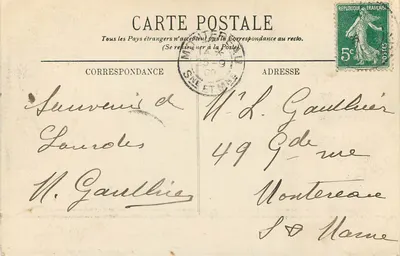 CARTE POSTALE
Tous les Pays étrangers n'acceptent pas la Correspondance au recto.
(Se renseigner à la Poste)
RÉPUBLIQUE FRANÇAISE
5c
POSTES
MONTEREAU
SNE ET MNE
CORRESPONDANCE
ADRESSE
Souvenir d
Lourdes
N. Gaulthier
Mr L. Gaulthier
49 Gde rue
Montereau
S & Marne